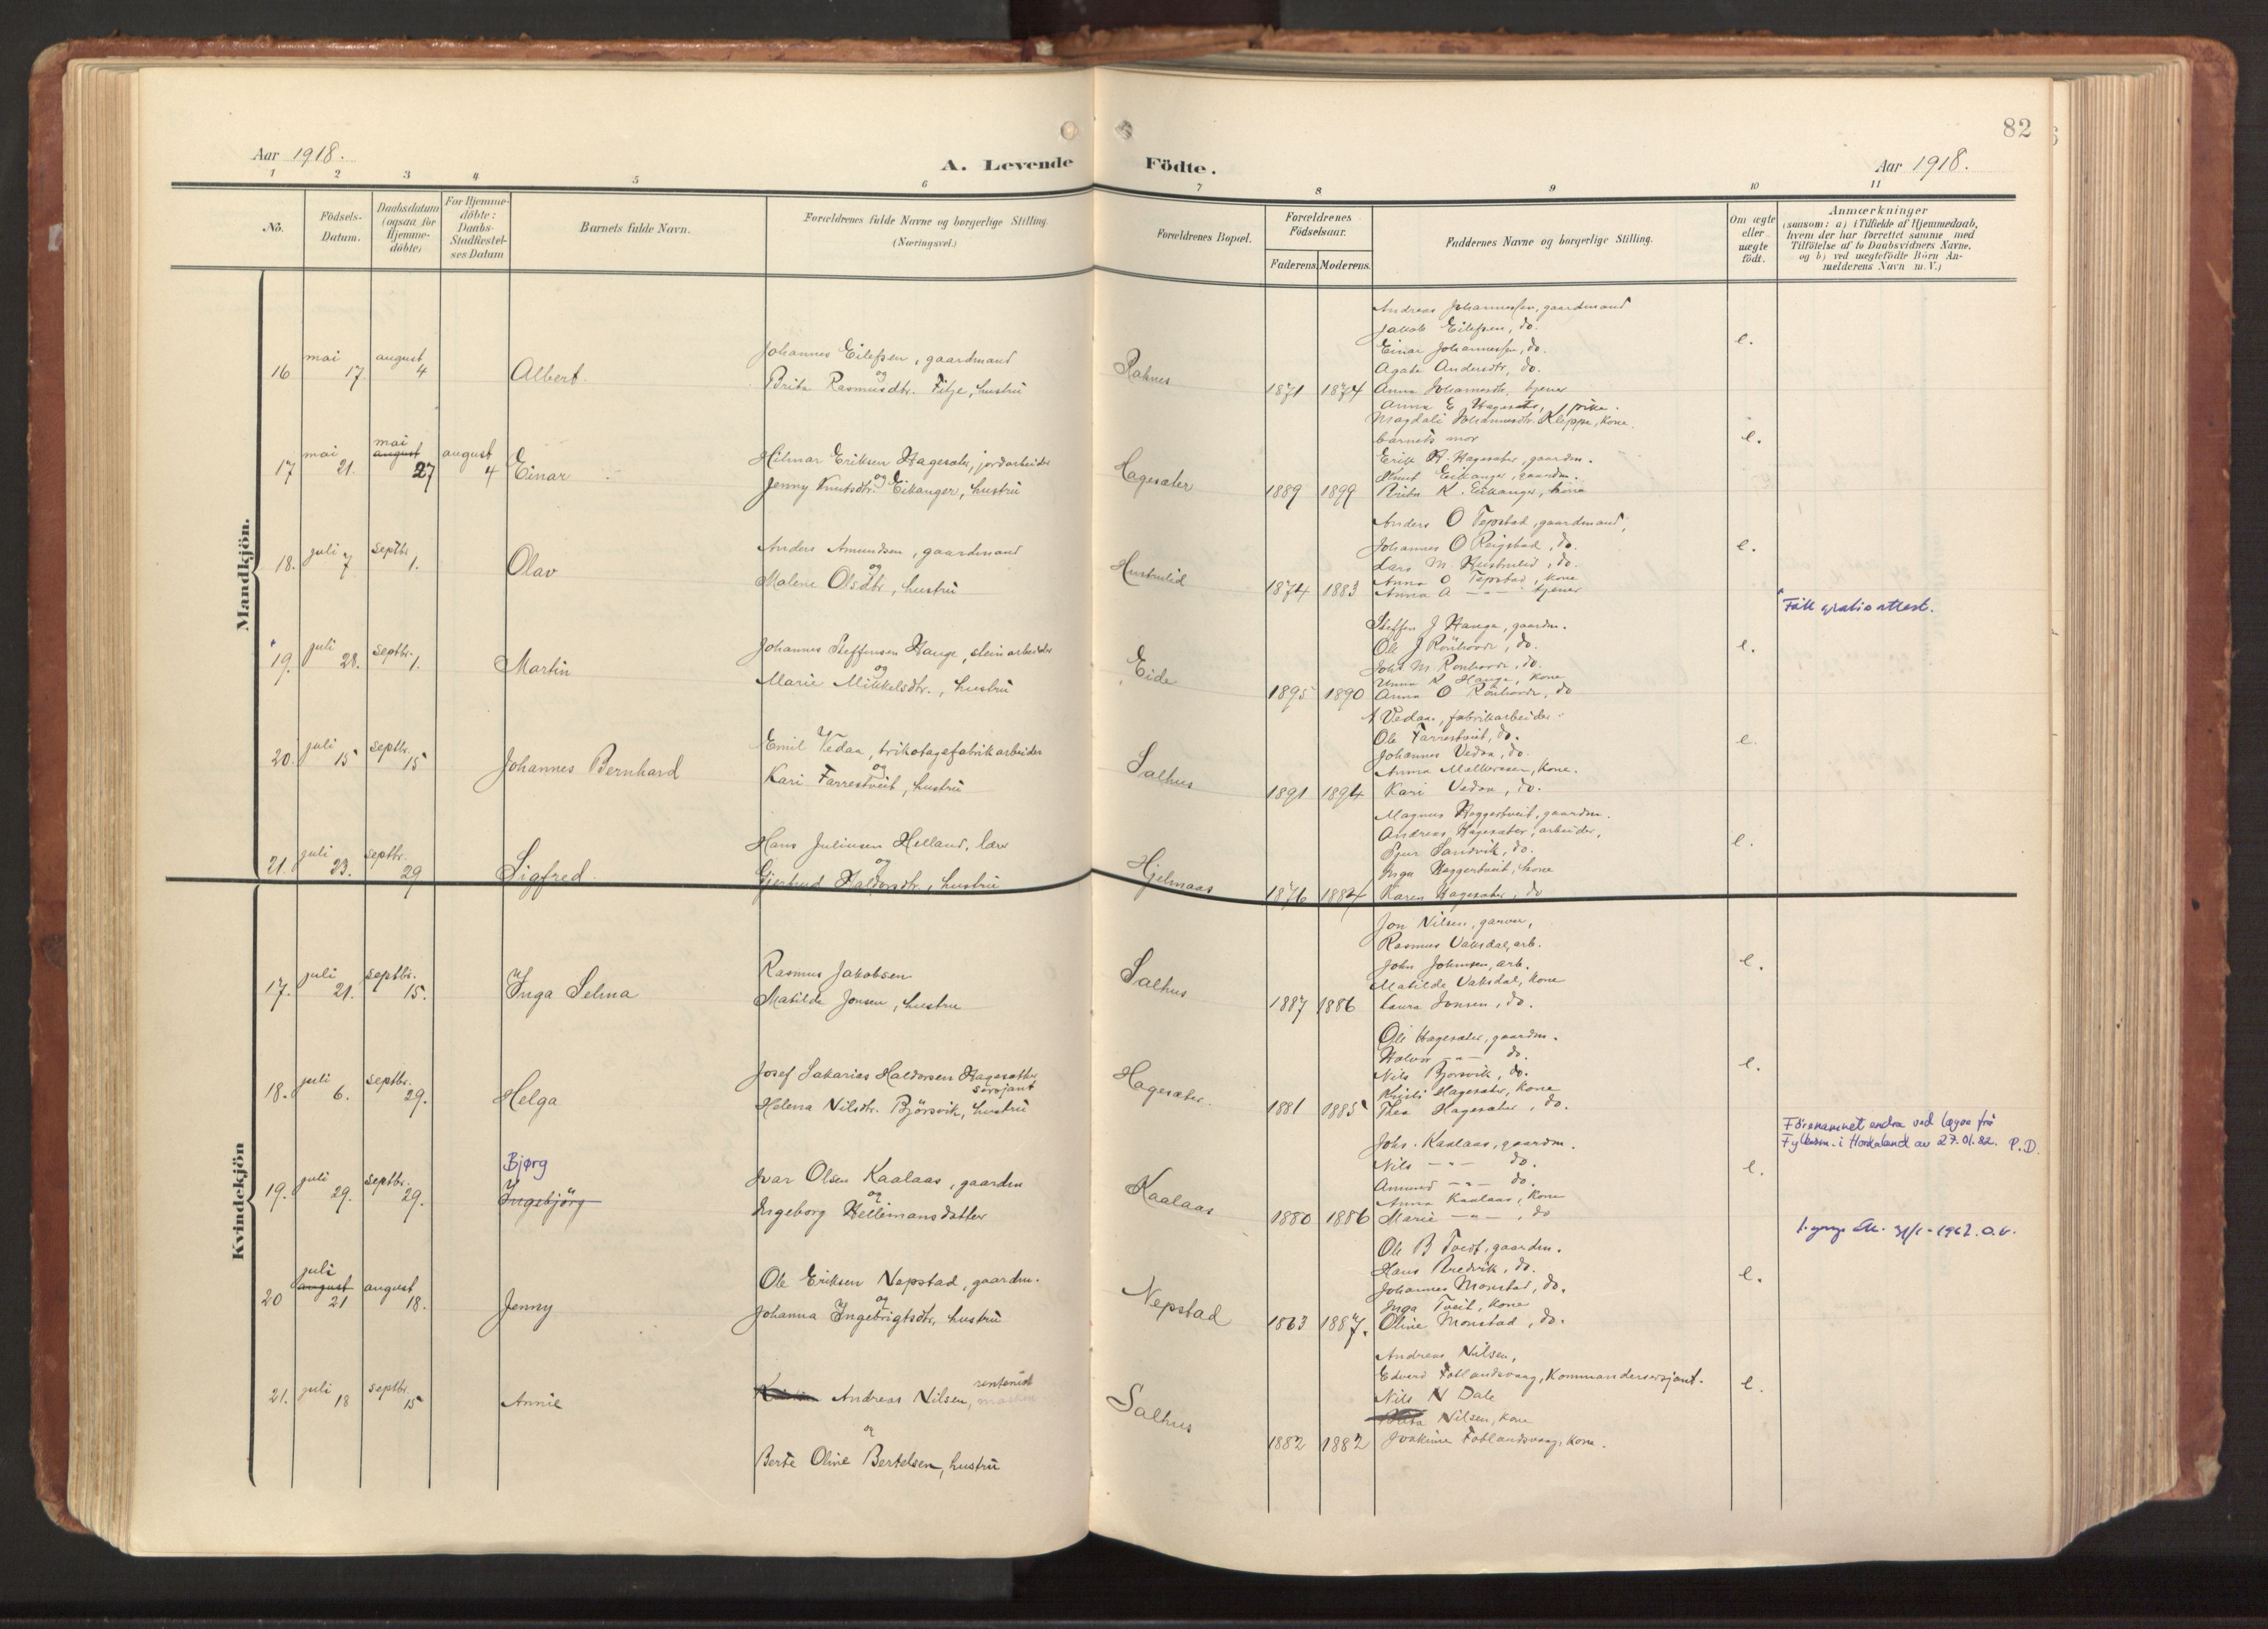 82
Aar 1918.
A. Levende Födte.
Aar 1918.
1 2 3 4 5 6 7 8 9 10 11
No.
Födsels-
Datum.
Daabsdatum
(ogsaa for
Hjemme-
döbte)
For Hjemme-
döbte:
Daabs-
Stadfæstel-
ses Datum
Barnets fulde Navn.
Forældrenes fulde Navne og borgerlige Stilling.
(Næringsvei.)
Forældrenes Bopæl.
Forældrenes
Födselsaar.
Faderens. Moderens.
Faddernes Navne og borgerlige Stilling.
Om ægte
eller
uægte
födt.
Anmærkninger
(saasom: a) i Tilfælde af Hjemmedaab,
hvem der har forrettet samme med
Tilföielse af to Daabsvidners Navne,
og b) ved uægtefödte Börn An-
melderens Navn m. V.)
Mandkjön.
16 mai 17. august 4 Albert.
Johannes Eilefsen, gaardmand
og
Brita Rasmusdtr. Fitje, hustru
1871 1874
Andreas Johannessen, gaardmand
Jakob Eilefsen, do.
Einar Johannessen, do.
Agate Andersdtr, do.
Anna Johannesdtr, tjener
e.
17 mai 21. mai august 27 august 4 Einar
Hilmar Eriksen Hagesæter, jordarbeider
og
Jenny Knutsdtr. Eikanger, hustru
Hagesæter
1889 1899
Anna E Hagesæter, pike.
Magdali Johannesdtr. Kleppe, kone.
barnets mor
Erik H. Hagesæter, gaardm.
Knut Eikanger, gaardm.
Brita K. Eikanger, kone
e.
18. juli 7 septbr. 1. Olav
Anders Amundsen, gaardmand
og
Malene Olsdtr, hustru
Hustrulid
1874 1883
Anders O Tepstad, gaardmand,
Johannes O Reigstad, do.
Lars M. Hustrulid, do.
Anna O Tepstad, kone
Anna A —"— tjener
e.
19. juli 28. septbr. 1. Martin
Johannes Steffensen Hauge, steinarbeider
og
Marie Mikkelsdtr., hustru
Eide
1895 1890
Steffen J Hauge, gaardm.
Ole J Rönhovde, do.
Johs M Rönhovde, do.
Hauge, kone
Anna O Rönhovde, do
e.
Fått gratisattest.
20. juli 15 septbr. 15 Johannes Bernhard
Emil Vedaa, trikotagefabrikarbeider
og
Kari Farrestveit, hustru
Salhus
1891 1894
A Vedaa, fabrikarbeider.
Ole Farrestveit, do.
Johannes Vedaa, do.
Anna Mathiesen, kone.
Kari Vedaa, do.
e.
21. juli 23. septbr. 29 Sigfred.
Hans Juliussen Helland, lærer
og
Gjertrud Haldorsdtr., hustru
Hjelmaas
1876 1884
Magnus Heggertveit, gaardm.
Andreas Hagesæter, arbeider,
Sjur Sandvik, do.
Inga Heggertveit, kone
Karen Hagesæter, do
e.
Kvindekjön
17. juli 21. septbr. 15. Inga Selma
Rasmus Jakobsen
Matilde Jonsen, hustru
Salhus
1887 1886
Jon Nilsen, garver,
Rasmus Vaksdal, arb.
John Johnsen, arb.
Matilde Vaksdal, kone
Laura Jonsen, do.
e.
18. juli 6. septbr. 29. Helga
Josef Sakarias Haldorsen Hagesætter
sersjant
Helena Nilsdtr. Björsvik, hustru
Hagesæter.
1881 1885
Ole Hagesæter, gaardm.
Halvor —"— do.
Nils Björsvik, do.
Kristi Hagesæter, kone
Thea Hagesæter, do.
e.
19. juli 29. septbr. 29. Bjørg
Ingebjörg
Ivar Olsen Kaalaas, gaardm
og
Ingeborg Hellimansdatter
Kaalaas
1880 1886
Johs. Kaalaas, gaardm.
Nils —"— do.
Amund —"— do.
Anna Kaalaas, kone
Marie —"—, do
e.
Förenamnet endra ved løyve frå
Fylkesm. i Hordaland av 27.01.82. P.D.
20 juli august 21 august 18. Jenny
Ole Eriksen Nepstad, gaardm.
og
Johanna Ingebrigtsdtr, hustru
Nepstad
1863 1887.
Ole B Tveit, gaardm.
Hans Bredvik, do.
Johannes Monstad, do.
Inga Tveit, kone
Oline Monstad, do.
e.
1962. O.V.
21. juli 18 septbr. 15 Annie
Andreas Nilsen,
og
Berte Oline Bertelsen, hustru
Salhus
1882 1882
Andreas Nilsen,
Edvard Totlandsvaag, Kommandersersjant.
Nils N Dale
Nilsen, kone
Joakime Totlandsvaag, kone.
e.